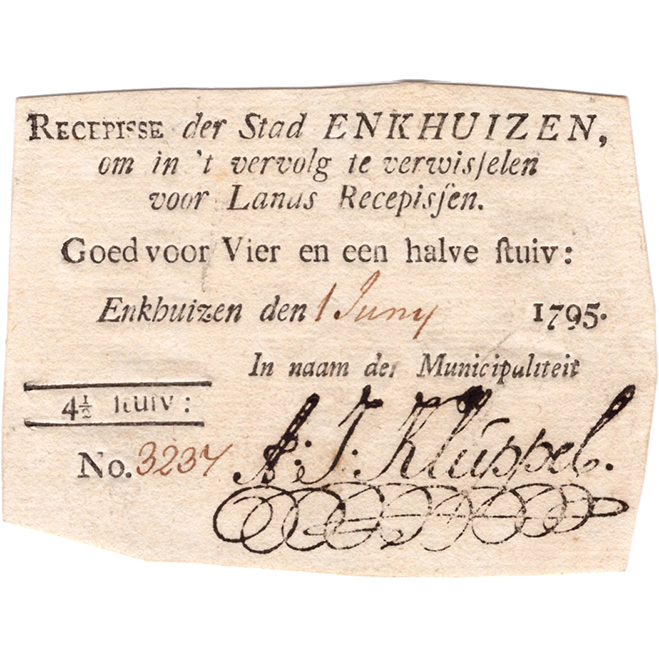 RECEPISSE der Stad ENKHUIZEN,
om in 't vervolg te verwisſelen
voor Lands Recepisſen.
Goed voor Vier en een halve ſtuiv:
Enkhuizen den 1 Juny 1795.
In naam der Municipaliteit
4½ ſtuiv:
No. 3237 A: J: Kluppel.